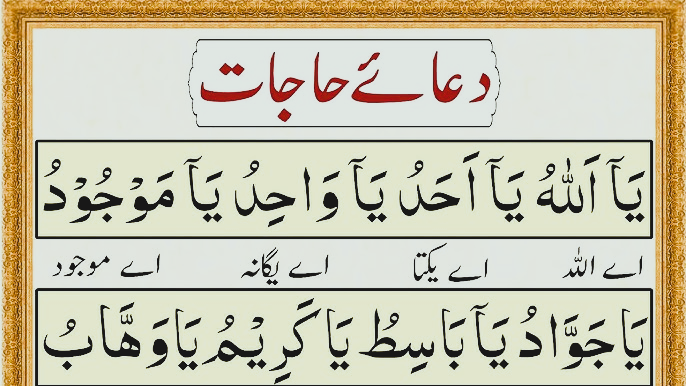 دعائے حاجات
يَآ اَللّٰهُ يَآ اَحَدُ يَآ وَاحِدُ يَآ مَوْجُوْدُ
اے اللہ اے یکتا اے یگانہ اے موجود
يَا جَوَّادُ يَآ بَاسِطُ يَا كَرِيْمُ يَا وَهَّابُ